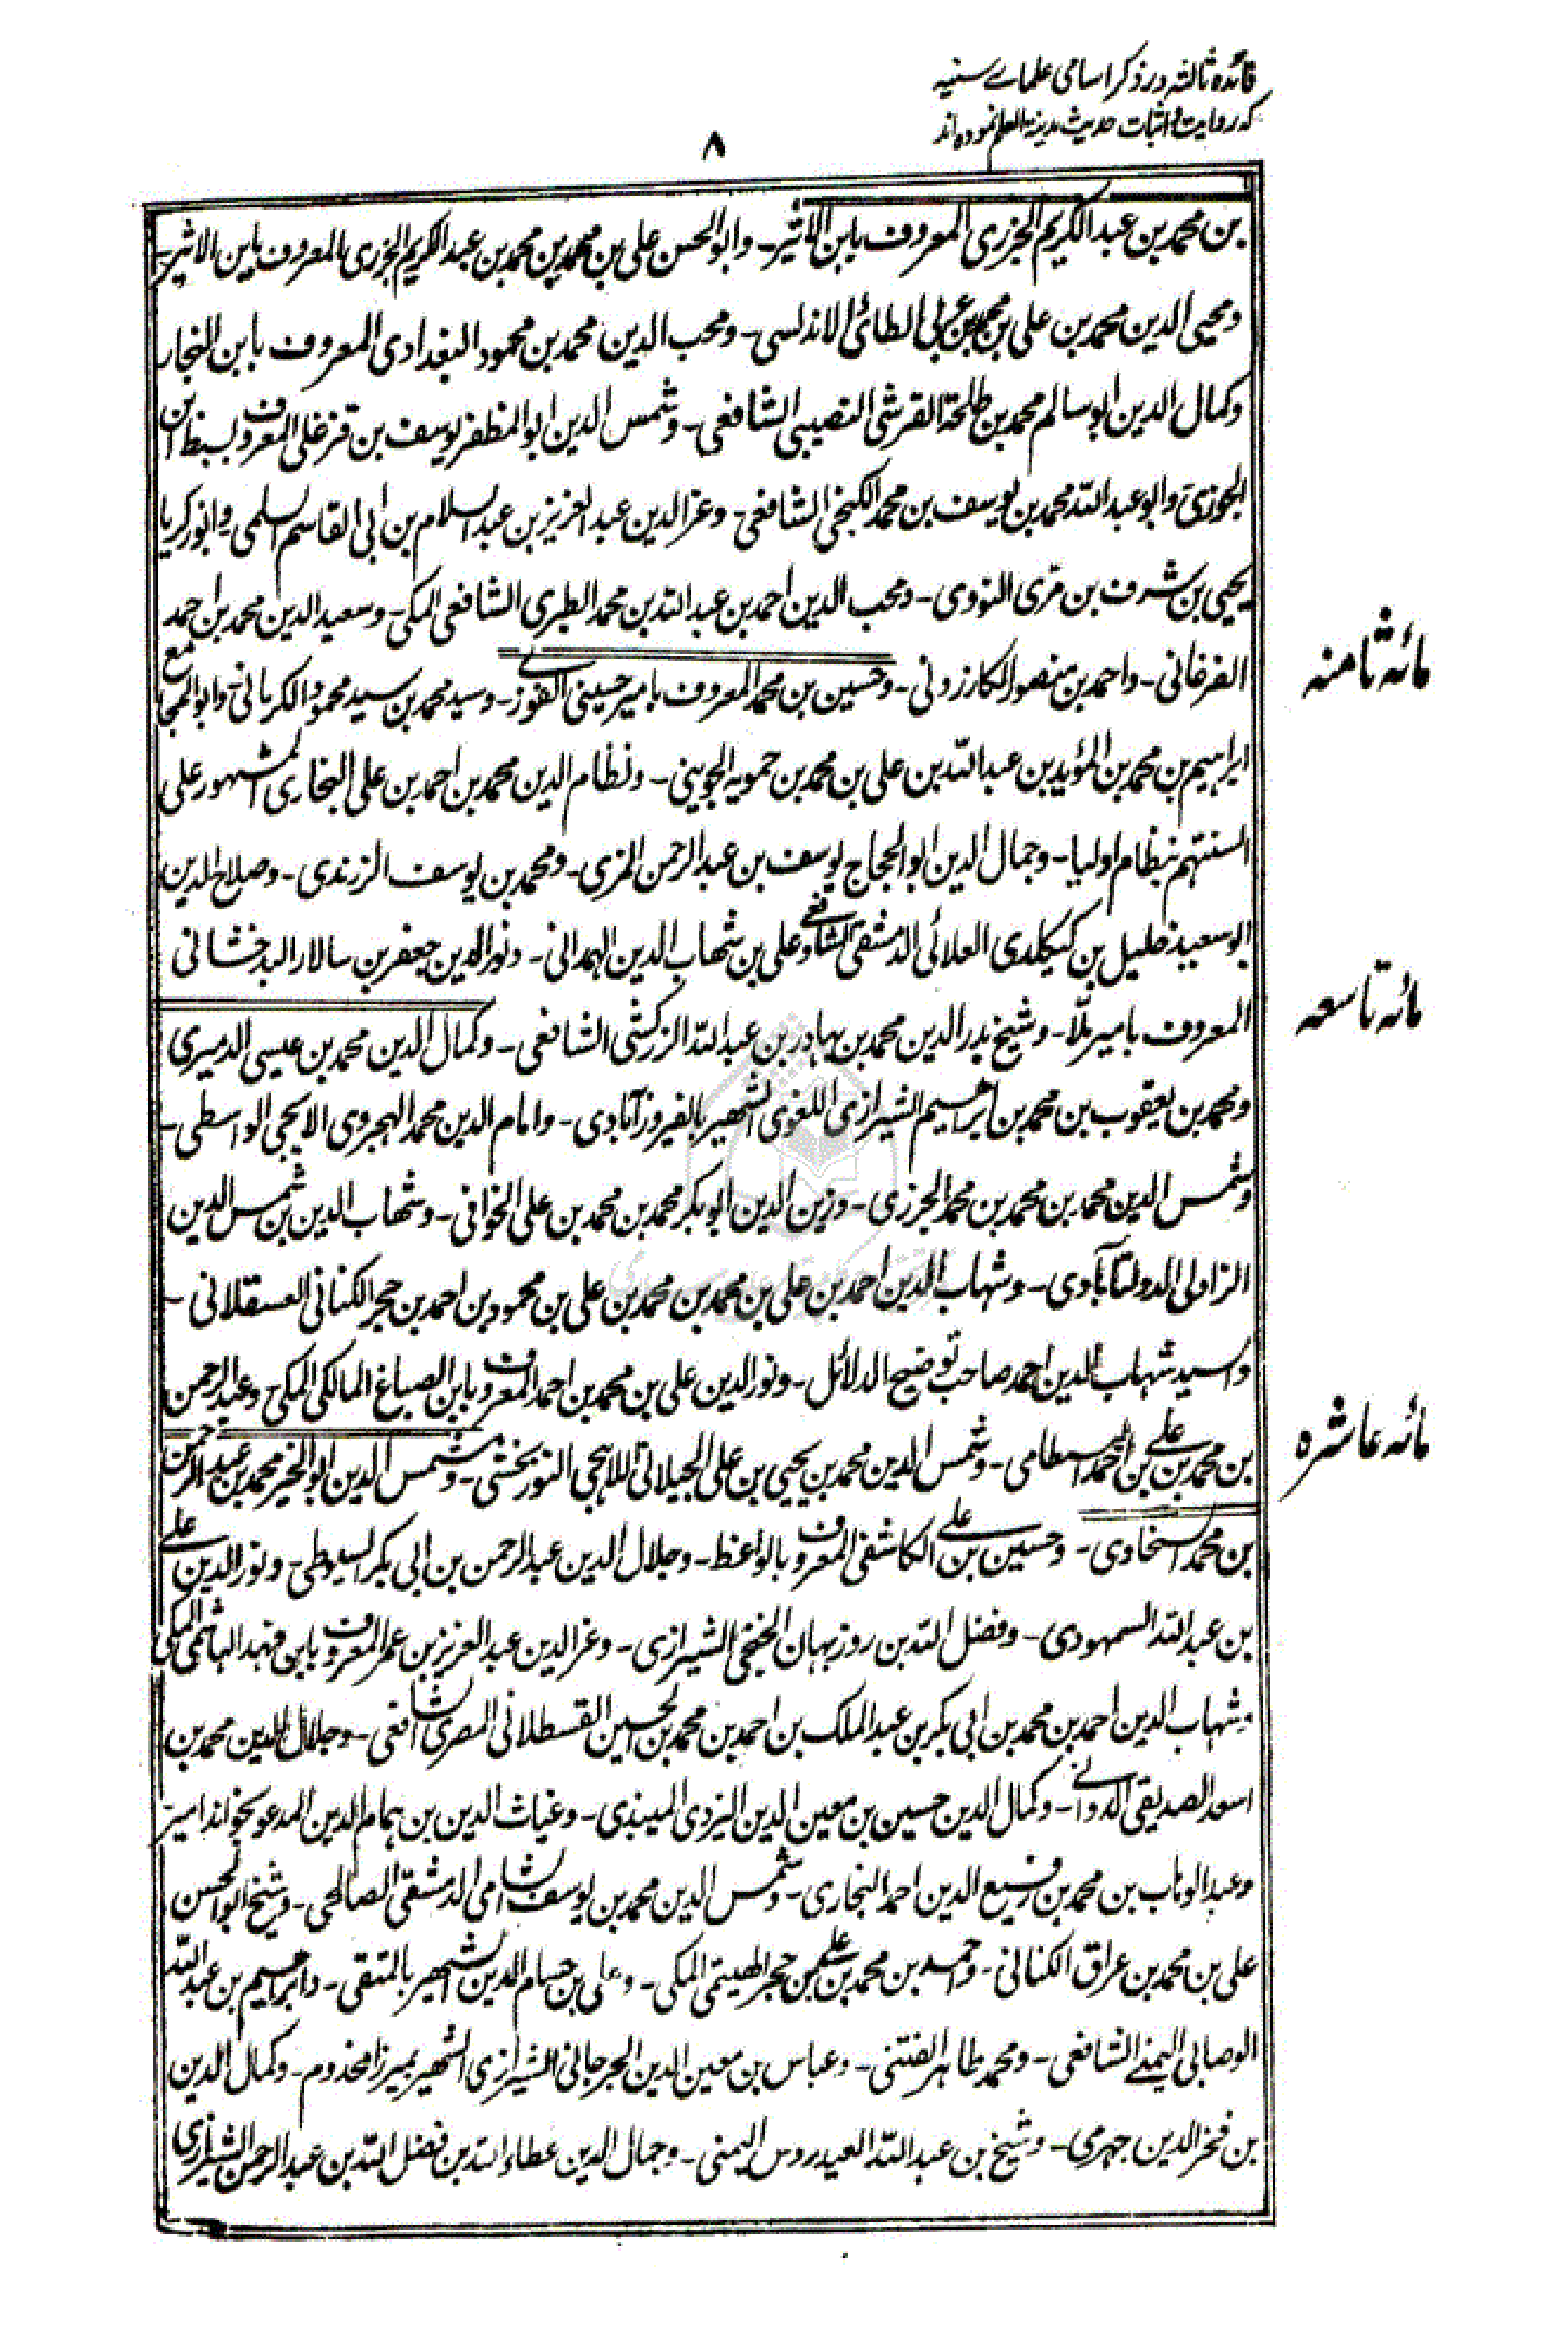 فائده ثالثه در ذکر اسامی علمای سنیه
که روایت و اثبات حدیث مدینة العلم نموده اند
۸
بن محمد بن عبد الکریم الجزری المعروف بابن الاثیر - وابو الحسن علی بن محمد بن محمد بن عبد الکریم الجزری المعروف بابن الاثیر -
ومحیی الدین محمد بن علی بن محمد بن عربی الطائی الاندلسی - ومحب الدین محمد بن محمود البغدادی المعروف بابن النجار
وکمال الدین ابو سالم محمد بن طلحة القرشی النصیبی الشافعی - وشمس الدین ابو المظفر یوسف بن قزغلی المعروف بسبط ابن
الجوزی وابو عبد الله محمد بن یوسف بن محمد الکنجی الشافعی - وعز الدین عبد العزیز بن عبد السلام بن ابی القاسم السلمی وابو زکریا
یحیی بن شرف بن مری النووی - ومحب الدین احمد بن عبد الله بن محمد الطبری الشافعی المکی - وسعید الدین محمد بن احمد
الفرغانی - واحمد بن منصور الکازرونی - وحسین بن محمد المعروف بامیر حسینی الفوزی - وسید محمد بن سید محمود الکرمانی وابو المجامع
مائه ثامنه
ابراهیم بن محمد بن المؤید بن عبد الله بن علی بن محمد بن حمویه الجوینی - ونظام الدین محمد بن احمد بن علی البخاری المشهور علی
السنتهم بنظام اولیا - وجمال الدین ابو الحجاج یوسف بن عبد الرحمن المزی - ومحمد بن یوسف الزرندی - وصلاح الدین
ابو سعید خلیل بن کیکلدی العلائی الدمشقی الشافعی وعلی بن شهاب الدین الهمدانی - ونور الدین جعفر بن سالار البدخشانی
المعروف بامیر ملّا - وشیخ بدر الدین محمد بن بهادر بن عبد الله الزرکشی الشافعی - وکمال الدین محمد بن عیسی الدمیری
مائه تاسعه
ومحمد بن یعقوب بن محمد بن ابراهیم الشیرازی اللغوی الشهیر بالفیروزآبادی - وامام الدین محمد الهجروی الایجی الواسطی -
وشمس الدین محمد بن محمد بن محمد الجزری - وزین الدین ابو بکر محمد بن محمد بن علی الخوافی - وشهاب الدین بن شمس الدین
الزاولی الدولتآبادی - وشهاب الدین احمد بن علی بن محمد بن محمد بن علی بن محمود بن احمد بن حجر الکنانی العسقلانی -
وسید شهاب الدین احمد صاحب توضیح الدلائل - ونور الدین علی بن محمد بن احمد المعروف بابن الصباغ المالکی المکی وعبد الرحمن
بن محمد بن علی بن احمد البسطامی - وشمس الدین محمد بن یحیی بن علی الجیلانی اللاهجی النوربخشی - وشمس الدین ابو الخیر محمد بن عبد الرحمن
مائه عاشره
بن محمد السخاوی - وحسین بن علی الکاشفی المعروف بالواعظ - وجلال الدین عبد الرحمن بن ابی بکر السیوطی ونور الدین علی
بن عبد الله السمهودی - وفضل الله بن روزبهان الخنجی الشیرازی - وعز الدین عبد العزیز بن عمر المعروف بابن فهد الهاشمی المکی
وشهاب الدین احمد بن محمد بن ابی بکر بن عبد الملک بن احمد بن محمد بن الحسین القسطلانی المصری الشافعی - وجلال الدین محمد بن
اسعد الصدیقی الدوانی - وکمال الدین حسین بن معین الدین الیزدی المیبذی - وغیاث الدین بن همام الدین المدعو بخواند امیر
وعبد الوهاب بن محمد بن رفیع الدین احمد البخاری - وشمس الدین محمد بن یوسف الشامی الدمشقی الصالحی - وشیخ ابو الحسن
علی بن محمد بن عراق الکنانی - واحمد بن محمد بن علی بن حجر الهیتمی المکی - وعلی بن حسام الدین الشهیر بالمتقی - وابراهیم بن عبد الله
الوصابی الیمنی الشافعی - ومحمد طاهر الفتنی - وعباس بن معین الدین الجرجانی الشیرازی الشهیر بمیرزا مخدوم - وکمال الدین
بن فخر الدین جهرمی - وشیخ بن عبد الله العیدروس الیمنی - وجمال الدین عطاء الله بن فضل الله بن عبد الرحمن الشیرازی